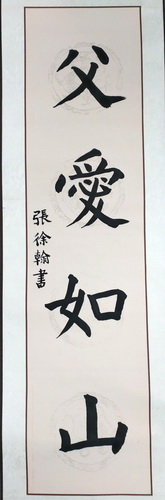 父愛如山
張徐翰書